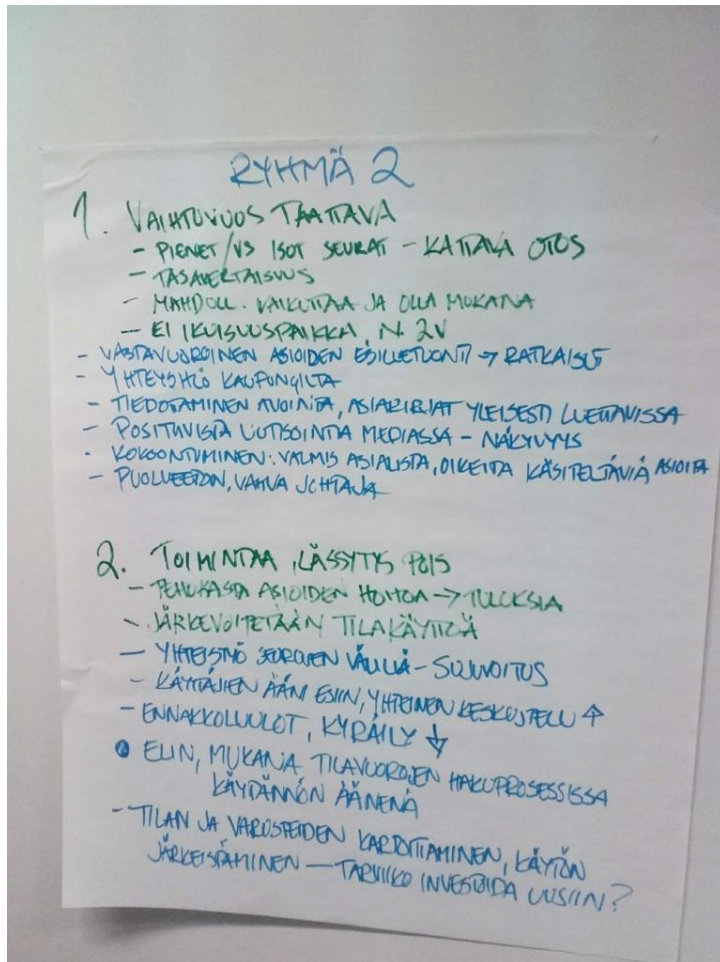 RYHMÄ 2
1. VAIHTUVUUS TAATTAVA
- PIENET/VS ISOT SEURAT - KATTAVA OTOS
- TASAVERTAISUUS
- MAHDOLL. VAIKUTTAA JA OLLA MUKANA
- EI IKUISUUSPAIKKA, N. 2V
- VASTAVUOROINEN ASIOIDEN ESILLETUONTI → RATKAISUT
- YHTEYSHLÖ KAUPUNGILTA
- TIEDOTTAMINEN AVOINTA, ASIAKIRJAT YLEISESTI LUETTAVISSA
- POSITIIVISTA UUTISOINTIA MEDIASSA - NÄKYVYYS
- KOKOONTUMINEN: VALMIS ASIALISTA, OIKEITA KÄSITELTÄVIÄ ASIOITA
- PUOLUEETON, VAHVA JOHTAJA
2. TOIMINTAA, LÄSSYTYS POIS
- TEHOKASTA ASIOIDEN HOITOA → TULOKSIA
- JÄRKEVÖITETÄÄN TILAKÄYTTÖÄ
- YHTEISTYÖ SEUROJEN VÄLILLÄ - SUJUVOITUS
- KÄYTTÄJIEN ÄÄNI ESIIN, YHTEINEN KESKUSTELU ↑
- ENNAKKOLUULOT, KYRÄILY ↓
• ELIN, MUKANA TILAVUOROJEN HAKUPROSESSISSA
KÄYTÄNNÖN ÄÄNENÄ
- TILAN JA VARUSTEIDEN KARTOITTAMINEN, KÄYTÖN
JÄRKEISTÄMINEN — TARVIIKO INVESTOIDA UUSIIN?